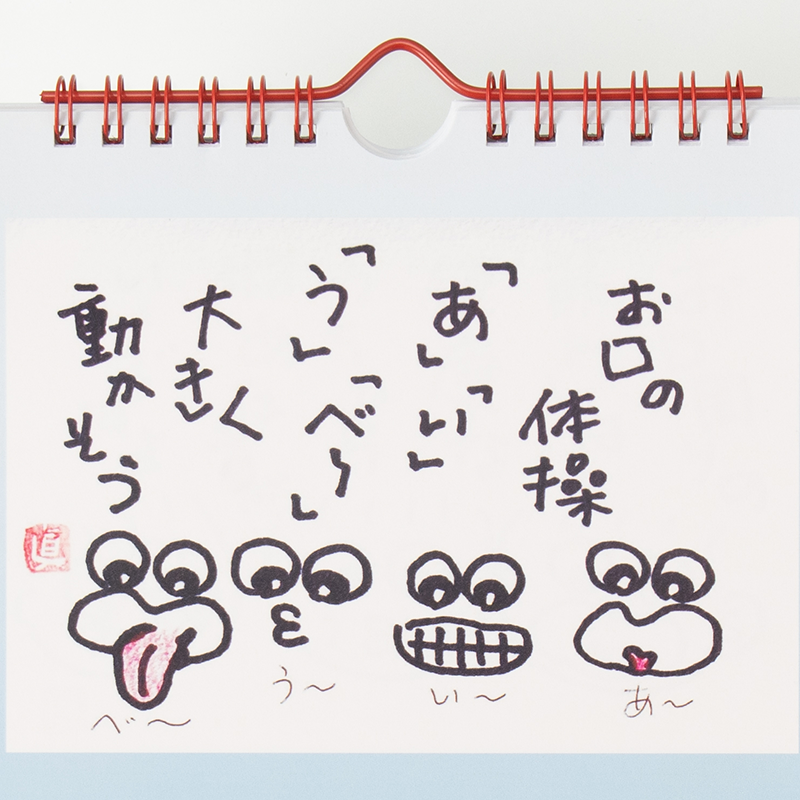 お口の
体操
「あ」「い」
「う」「べ〜」
大きく
動かそう
あ〜
い〜
う〜
べ〜
直